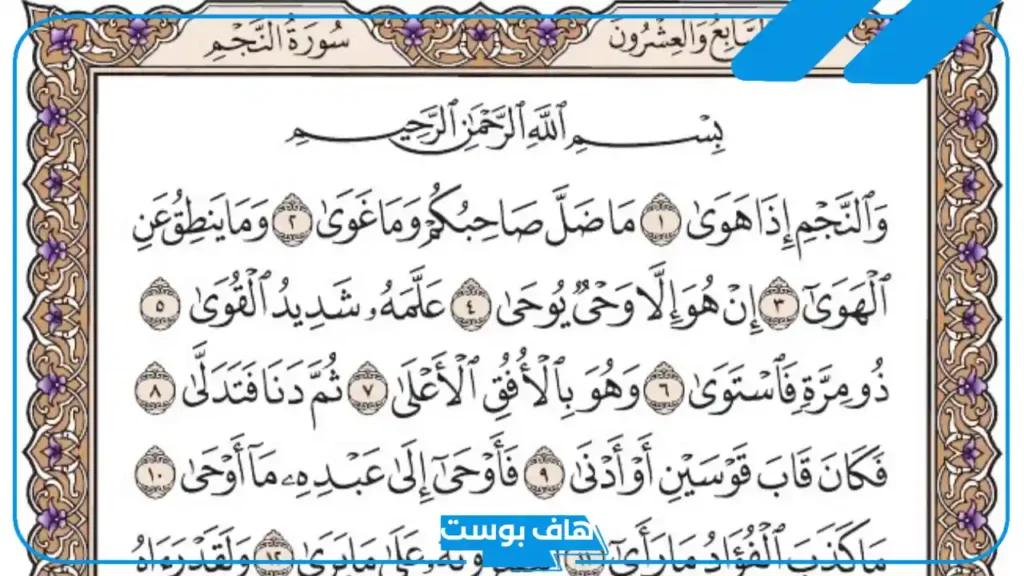 سُورَةُ النَّجْمِ
وَالْعِشْرُونَ
بِسْمِ ٱللَّهِ ٱلرَّحْمَٰنِ ٱلرَّحِيمِ
وَٱلنَّجْمِ إِذَا هَوَىٰ ١ مَا ضَلَّ صَاحِبُكُمْ وَمَا غَوَىٰ ٢ وَمَا يَنطِقُ عَنِ
ٱلْهَوَىٰٓ ٣ إِنْ هُوَ إِلَّا وَحْىٌ يُوحَىٰ ٤ عَلَّمَهُۥ شَدِيدُ ٱلْقُوَىٰ ٥
ذُو مِرَّةٍ فَٱسْتَوَىٰ ٦ وَهُوَ بِٱلْأُفُقِ ٱلْأَعْلَىٰ ٧ ثُمَّ دَنَا فَتَدَلَّىٰ ٨
فَكَانَ قَابَ قَوْسَيْنِ أَوْ أَدْنَىٰ ٩ فَأَوْحَىٰٓ إِلَىٰ عَبْدِهِۦ مَآ أَوْحَىٰ ١٠
مَا كَذَبَ ٱلْفُؤَادُ مَا رَأَىٰٓ عَلَىٰ مَا يَرَىٰ ١٢ وَلَقَدْ رَءَاهُ
هاف بوست